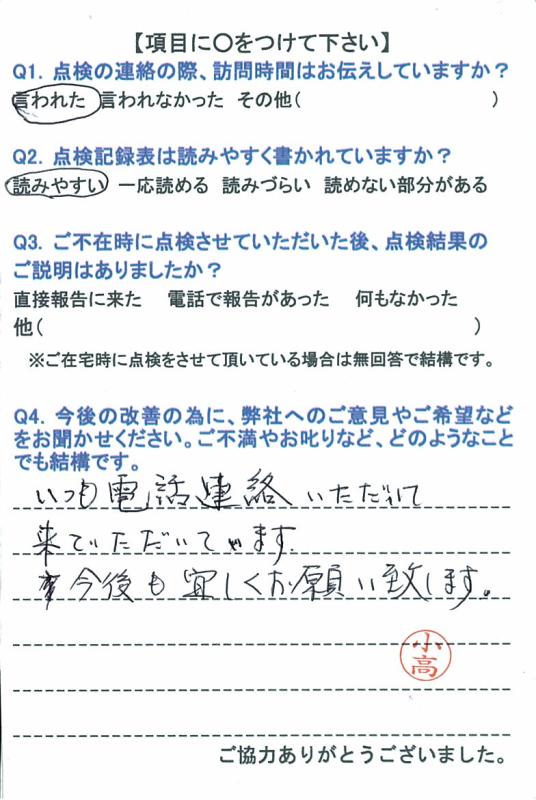 【項目に〇をつけて下さい】
Q1. 点検の連絡の際、訪問時間はお伝えしていますか?
言われた 言われなかった その他( )
Q2. 点検記録表は読みやすく書かれていますか?
読みやすい 一応読める 読みづらい 読めない部分がある
Q3. ご不在時に点検させていただいた後、点検結果の
ご説明はありましたか?
直接報告に来た 電話で報告があった 何もなかった
他( )
※ご在宅時に点検をさせて頂いている場合は無回答で結構です。
Q4. 今後の改善の為に、弊社へのご意見やご希望など
をお聞かせください。ご不満やお叱りなど、どのようなこと
でも結構です。
いつも電話連絡いただいて
来ていただいてます.
今後も宜しくお願い致します。
小高
ご協力ありがとうございました。